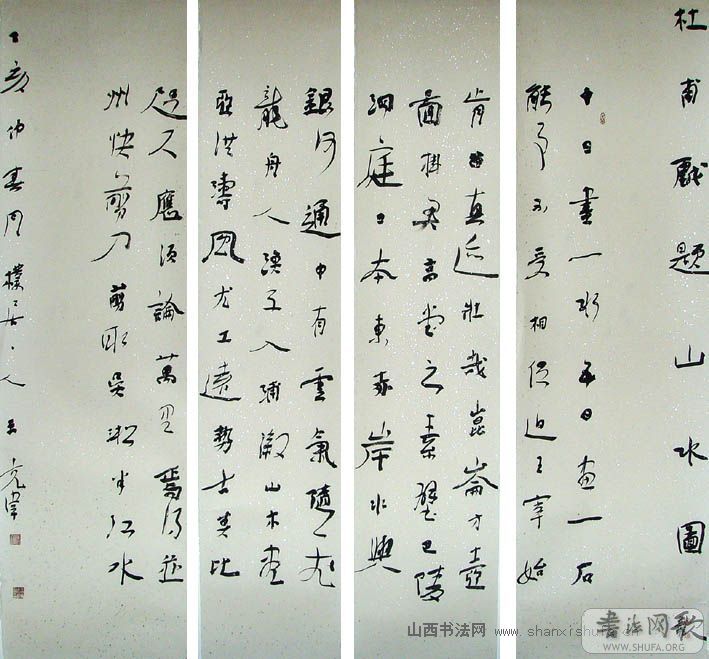 杜甫戲題山水圖歌
十日畫一水五日画一石
能事不受相促迫王宰始
肯留真迹壯哉崑崙方壺
圖掛君高堂之素壁巴陵
洞庭日本東赤岸水與
銀河通中有雲氣隨飛
龍舟人漁子入浦漵山木盡
亞洪濤風尤工遠勢古莫比
咫尺應須論萬里焉得並
州快剪刀剪取吳淞半江水
丁亥仲春月樸居人
山西书法网 www.shanxishufa
書法网
WWW.SHUFA.ORG